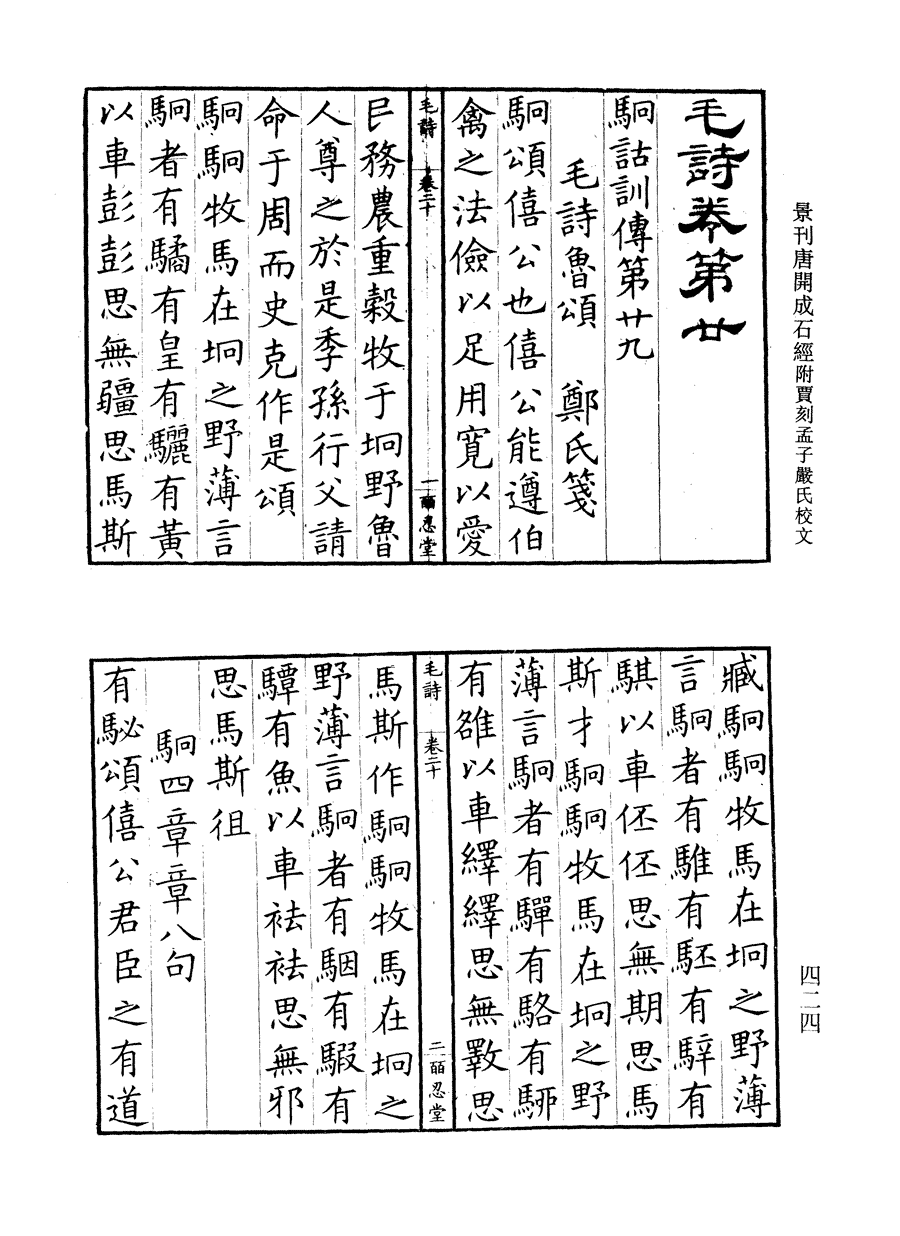 景刊唐開成石經附賈刻孟子嚴氏校文
毛詩卷第廿
駉詁訓傳第廿九
毛詩魯頌 鄭氏箋
駉頌僖公也僖公能遵伯
禽之法儉以足用寬以愛
毛詩 卷二十 一 皕忍堂
民務農重穀牧于坰野魯
人尊之於是季孫行父請
命于周而史克作是頌
駉駉牡馬在坰之野薄言
駉者有驈有皇有驪有黃
以車彭彭思無疆思馬斯
臧駉駉牧馬在坰之野薄
言駉者有騅有駓有騂有
騏以車伾伾思無期思馬
斯才駉駉牧馬在坰之野
薄言駉者有驒有駱有駵
有雒以車繹繹思無斁思
毛詩 卷二十 二 皕忍堂
馬斯作駉駉牧馬在坰之
野薄言駉者有駰有騢有
驔有魚以車袪袪思無邪
思馬斯徂
駉四章章八句
有駜頌僖公君臣之有道
四二四